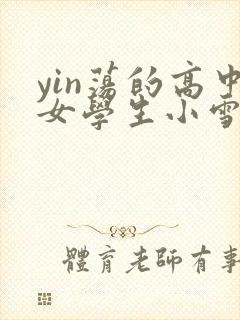 yin蕩的高中
女學生小雪
體育老師有事